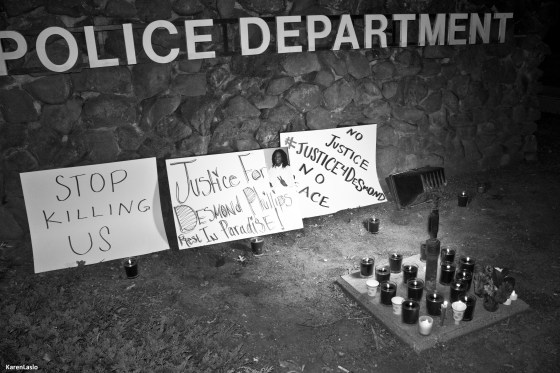 POLICE DEPARTMENT
STOP
KILLING
US
Justice For
Desmond Phillips
Rest In Paradise!
NO
JUSTICE
#JUSTICE4Desmond
NO
ACE
KarenLaslo